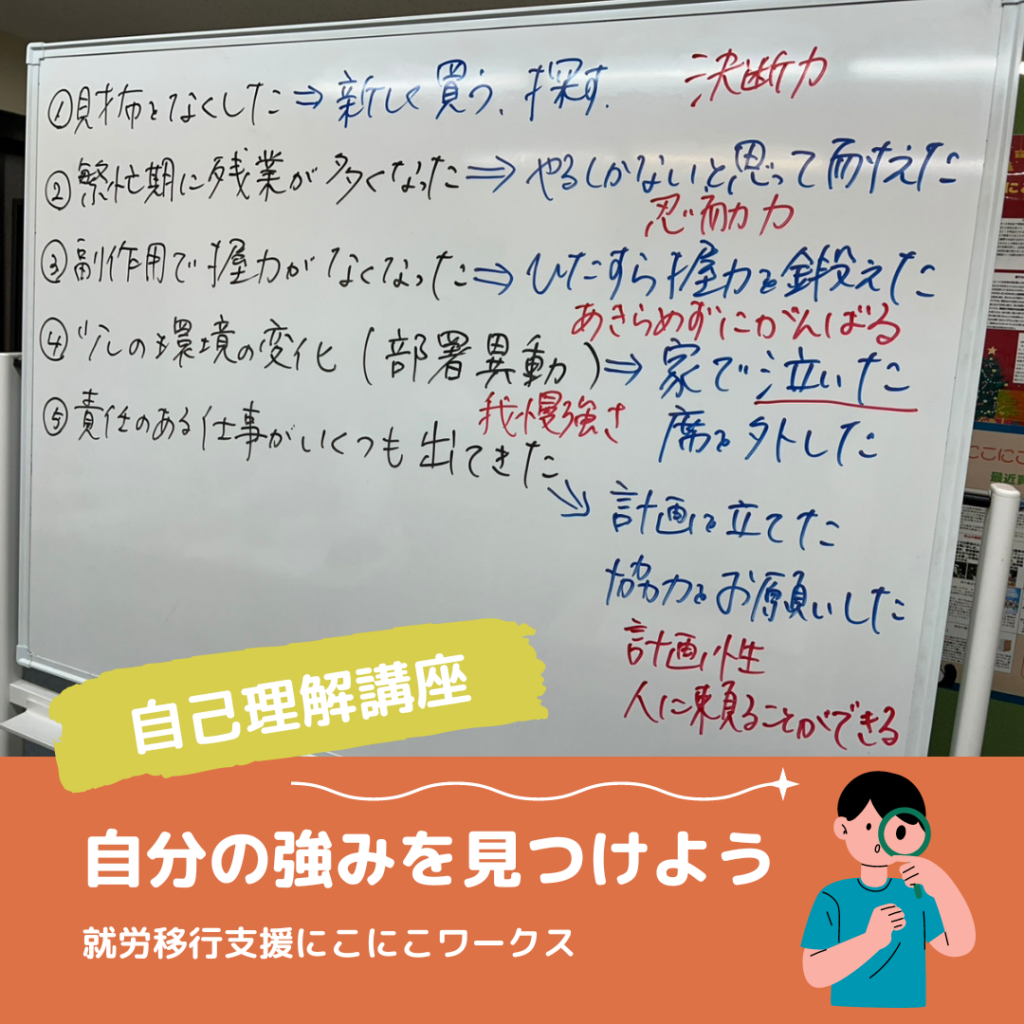 ①財布をなくした⇒新しく買う、探す.
決断力
②繁忙期に残業が多くなった⇒やるしかないと思って耐えた
忍耐力
③副作用で握力がなくなった⇒ひたすら握力を鍛えた
あきらめずにがんばる
④少しの環境の変化(部署異動)⇒家で泣いた
我慢強さ
席を外した
⑤責任のある仕事がいくつも出てきた
⇒計画を立てた
協力をお願いした
計画性
人に頼ることができる
自己理解講座
自分の強みを見つけよう
就労移行支援にこにこワークス